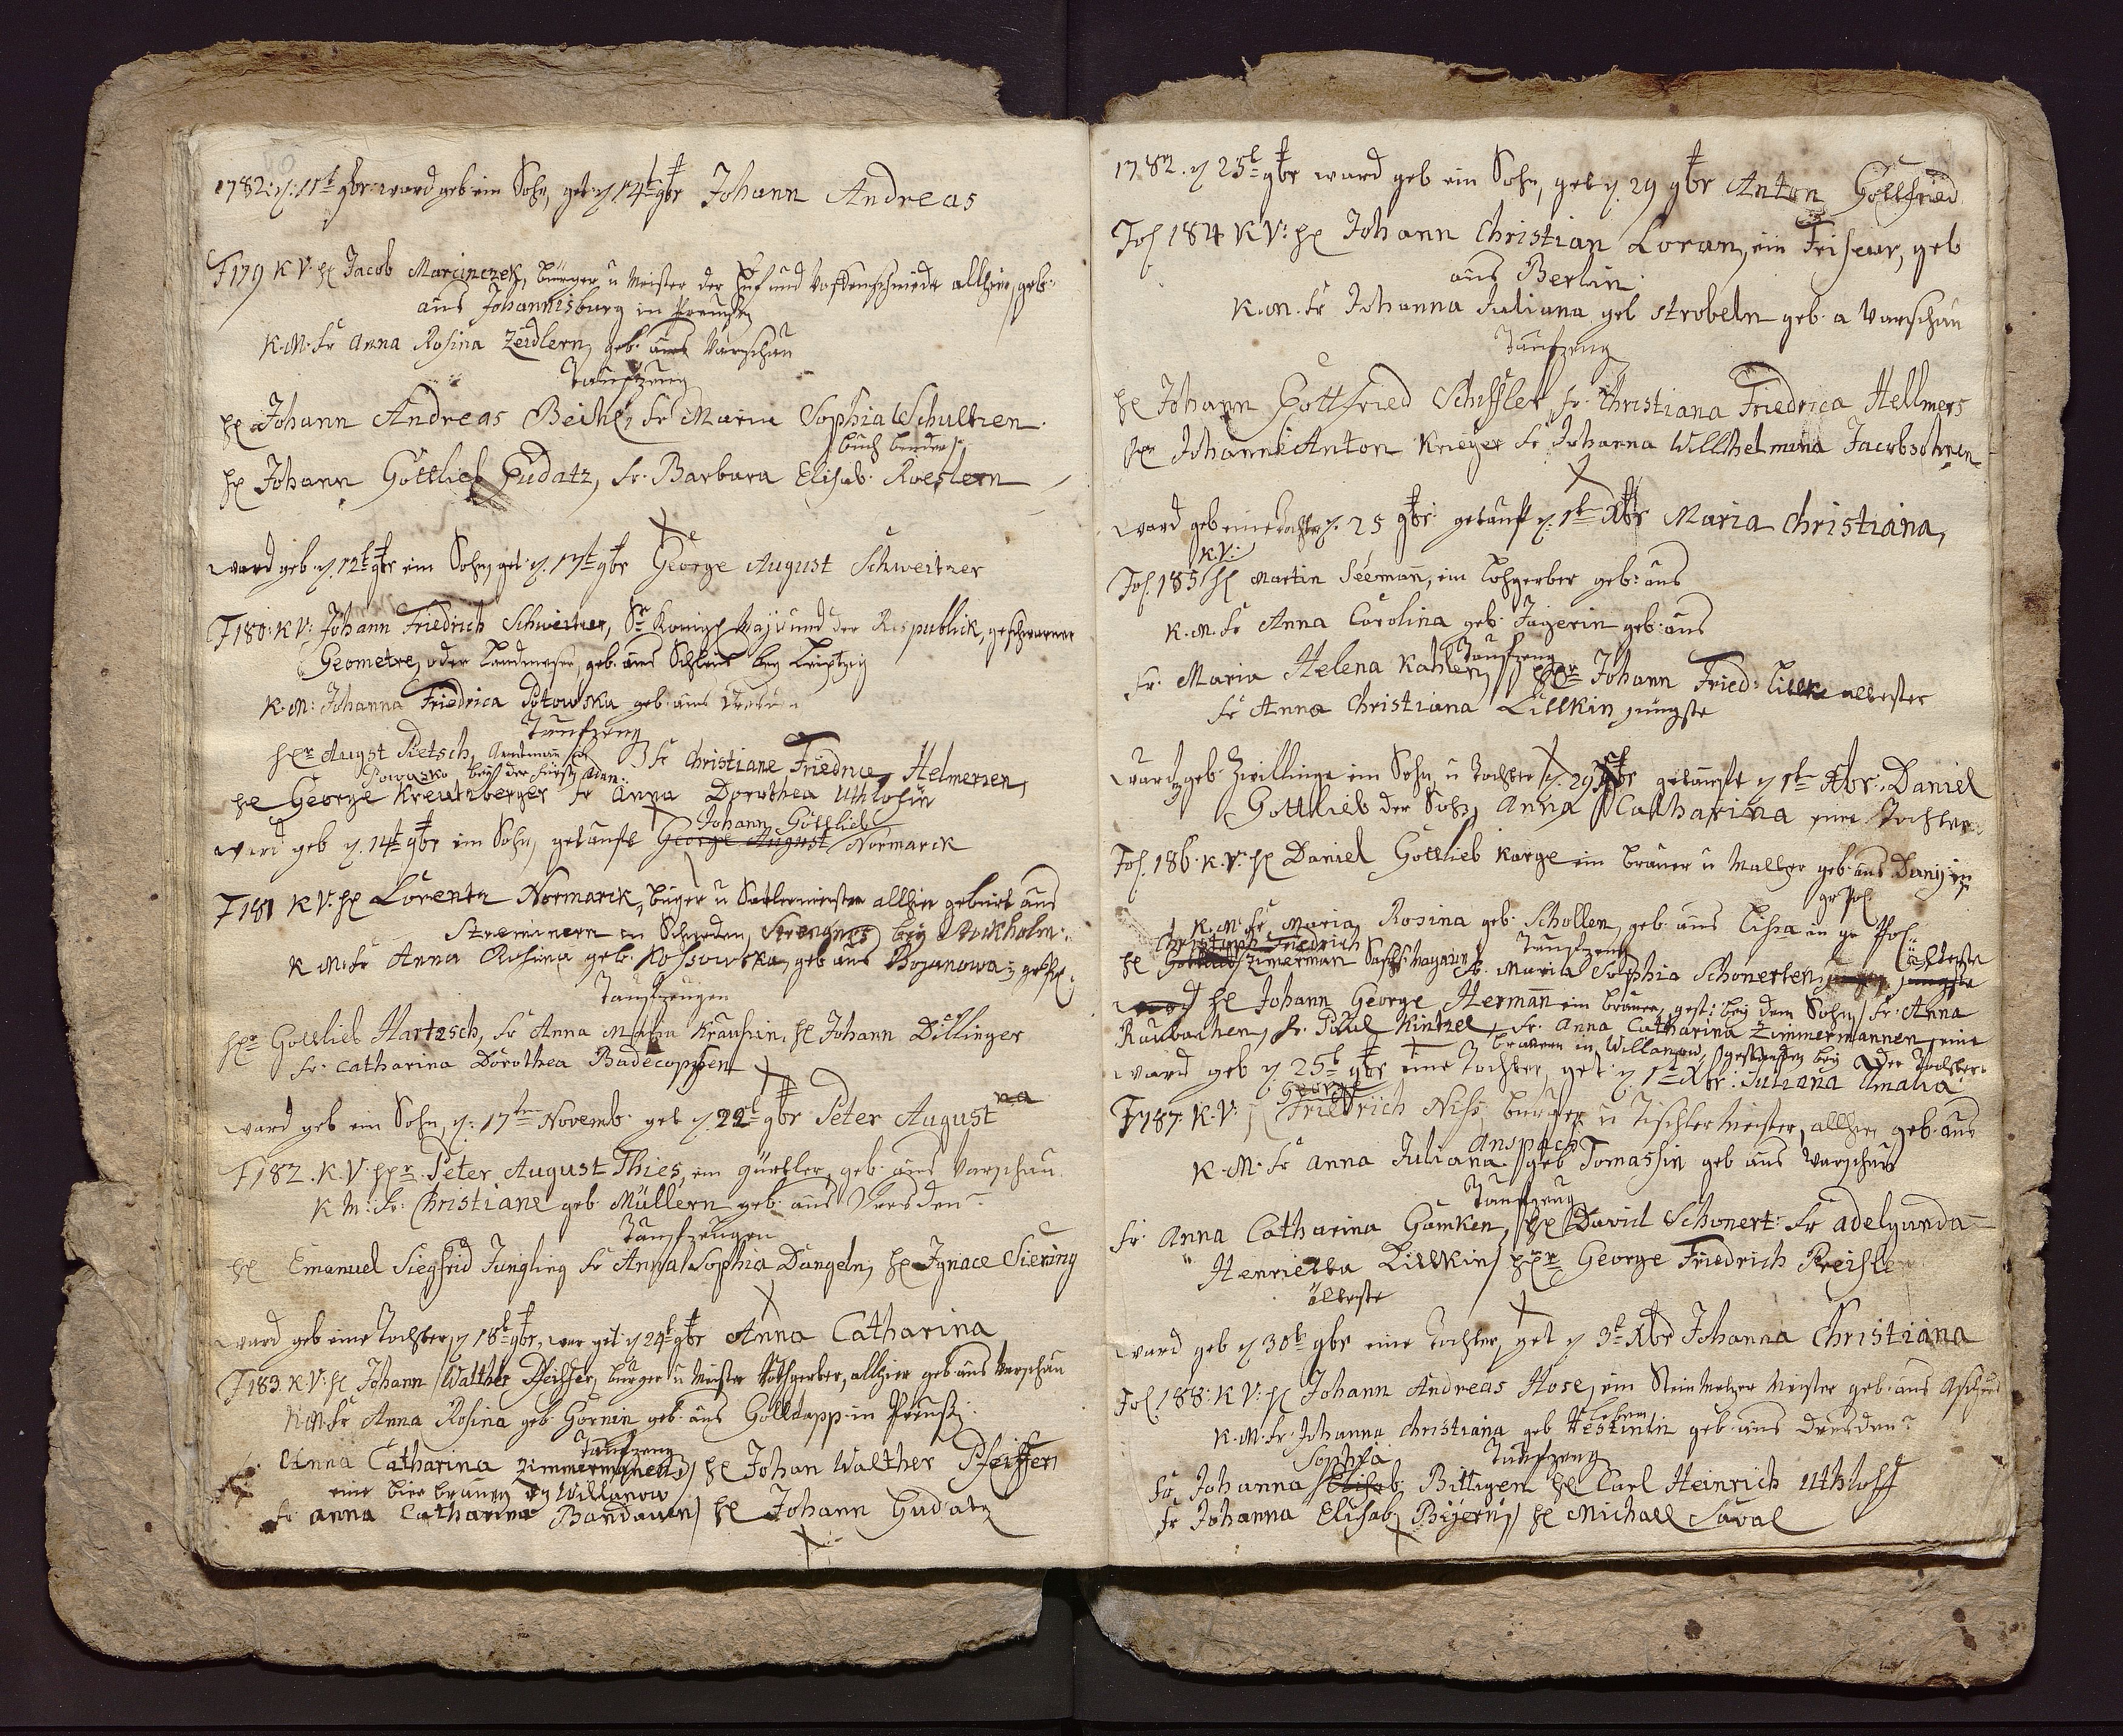 1782: d. 11t 9br ward geb ein Sohn, get d 14t 9br Johann Andreas
F 179 K V: H Jacob Marcinczek, Bürger u Meister der Huf und Waffenschmiede allhier, geb.
aus Johannisburg in Preußen
K. M. Fr Anna Rosina Zeidlern, geb. aus Warschau
Taufzeug
H Johann Andreas Beihl, Fr Maria Sophia Schultzen
buch binder
H Johann Gottlieb Gudatz, Fr. Barbara Elisab. Roeslern
ward geb. d. 12t 9br ein Sohn, get. d. 17t 9br George August Schweitzer
F 180. K V: Johann Friedrich Schweitzer, Sr Königl Maj: und der Respublick, geschworner
Geometre, oder Landmesser, geb. aus bey Leiptzig
K. M: Johanna Friedrica geb. aus Dresden
Taufzeug
Hr August Pietsch, Amtmann Fr Christiane Friedrica Helmerzen,
bey der Fürstin
H George Kreutzberger Fr Anna Dorothea Uthlofin
Johann Gottlieb
ward geb d. 14t 9br ein Sohn, getauft George August Normarck
F 181 K V: H Lorentz Normarck, Bürger u Sattlermeister allhier gebürt aus
in Schweden, Strengnes bey Stockholm
K M. Fr Anna Rosina geb. Kossowska, geb aus Bojanowa in gr Pol.
Taufzeugen
Hr Gottlieb Hartzsch, Fr Anna Maria Krausin, H Johann Dillinger
Fr. Catharina Dorothea Badecoppen
ward geb ein Sohn, d. 17ten Novemb. get d. 22t 9br Peter August
F 182. K. V. Hr. Peter August Thies, ein Gürtler, geb. aus Warschau
K M: Fr. Christiane geb Müllern geb. aus Dresden
Taufzeugen
H Emanuel Siegfrid Jungling Fr Anna Sophia Dangeln, H Ignace Siering
ward geb eine Tochter, d 18t 9br, war get d 24t 9br Anna Catharina
F 183. K. V: H Johann Walther Pfeiffer, Bürger u Meister Rothgerber, allhier geb aus Warschau
K. M. Fr Anna Rosina geb. Gornin geb. aus Golldapp in Preuß.
Taufzeug
Anna Catharina Zimmermannen, H Johan Walther Pfeiffer
eine bier brauerin in Willanow
Fr Anna Catharina Bandauen, H Johann Gudatz
1782. d 25t 9br ward geb ein Sohn, get d. 29 9br Anton Gottfried
Fol 184 K V: H Johann Christian Loran, ein Friseur, geb
aus Berlin
K. M. Fr Johanna Juliana geb Strobeln geb. a Warschau
Taufzeug
H Johann Gottfried Schiffler, Fr. Christiana Friedrica Hellmers
Hr Johann Anton Krieger Fr Johanna Willhelmina Jacobsohnen
ward geb eine Tochter d. 25 9br getauft d. 1t Xbr Maria Christiana,
K. V:
Fol. 185 H Martin Seemann, ein Lohgerber geb: aus
K. M. Fr Anna Carolina geb. Jägerin geb. aus
Taufzeug
Fr. Maria Helena Kahlen, Hr Johann Fried: Lillke ältester
Fr Anna Christiana Lillkin jüngste
ward geb Zwillinge ein Sohn u Tochter d. 29 9br getauft d 1t Xbr. Daniel
Gottlieb der Sohn, Anna Catharina eine Tochter
Fol. 186. K. V: H Daniel Gottlieb Karge ein Brauer u Maltzer geb. aus Danzig in
gr Pol
K. M. Fr Maria Rosina geb. Schollen, geb. aus Lissa in gr Pol
Christoph Friedrich Taufzeug älteste
H Gottlieb Zimerman Fr. Maria Sophia Schonerten, jüngste
H Johann George Hermann ein Brauer, gest: bey dem Sohn, Fr. Anna
Raubachen, H. Paul Kintzel, Fr. Anna Catharina Zimmermannen, eine
brauerin in Willanow, gestanden bey der Tochter
ward geb d 25t 9br eine Tochter, get d 1t Xbr. Juliana Amalia
George
F 187. K. V: Friedrich Niss, burger u Tischler Meister, allhier geb. aus
Anspach
K. M. Fr Anna Juliana geb Tomassin geb aus Warschau
Taufzeug
Fr. Anna Catharina Gämken, H David Schonert Fr Adelgunda
Henrietta Lillkin, Hr George Friedrich Preisler
älteste
ward geb d 30t 9br eine Tochter, get d 3t Xbr Johanna Christiana
Fol. 188. K V: H Johann Andreas Hose, ein Stein Metzer Meister geb. aus Aschers
leben
K. M. Fr. Johanna Christiana geb Vestintin geb aus Dresden
Sophia Taufzeug
Fr Johanna Elisab. Bittigen H Carl Heinrich Uthloff
Fr Johanna Elisab Beyern, H Michael Saval